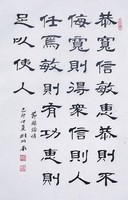 恭寬信敏惠恭則不
侮寬則得衆信則人
任焉敏則有功惠則
足以使人
節錄論語
己卯